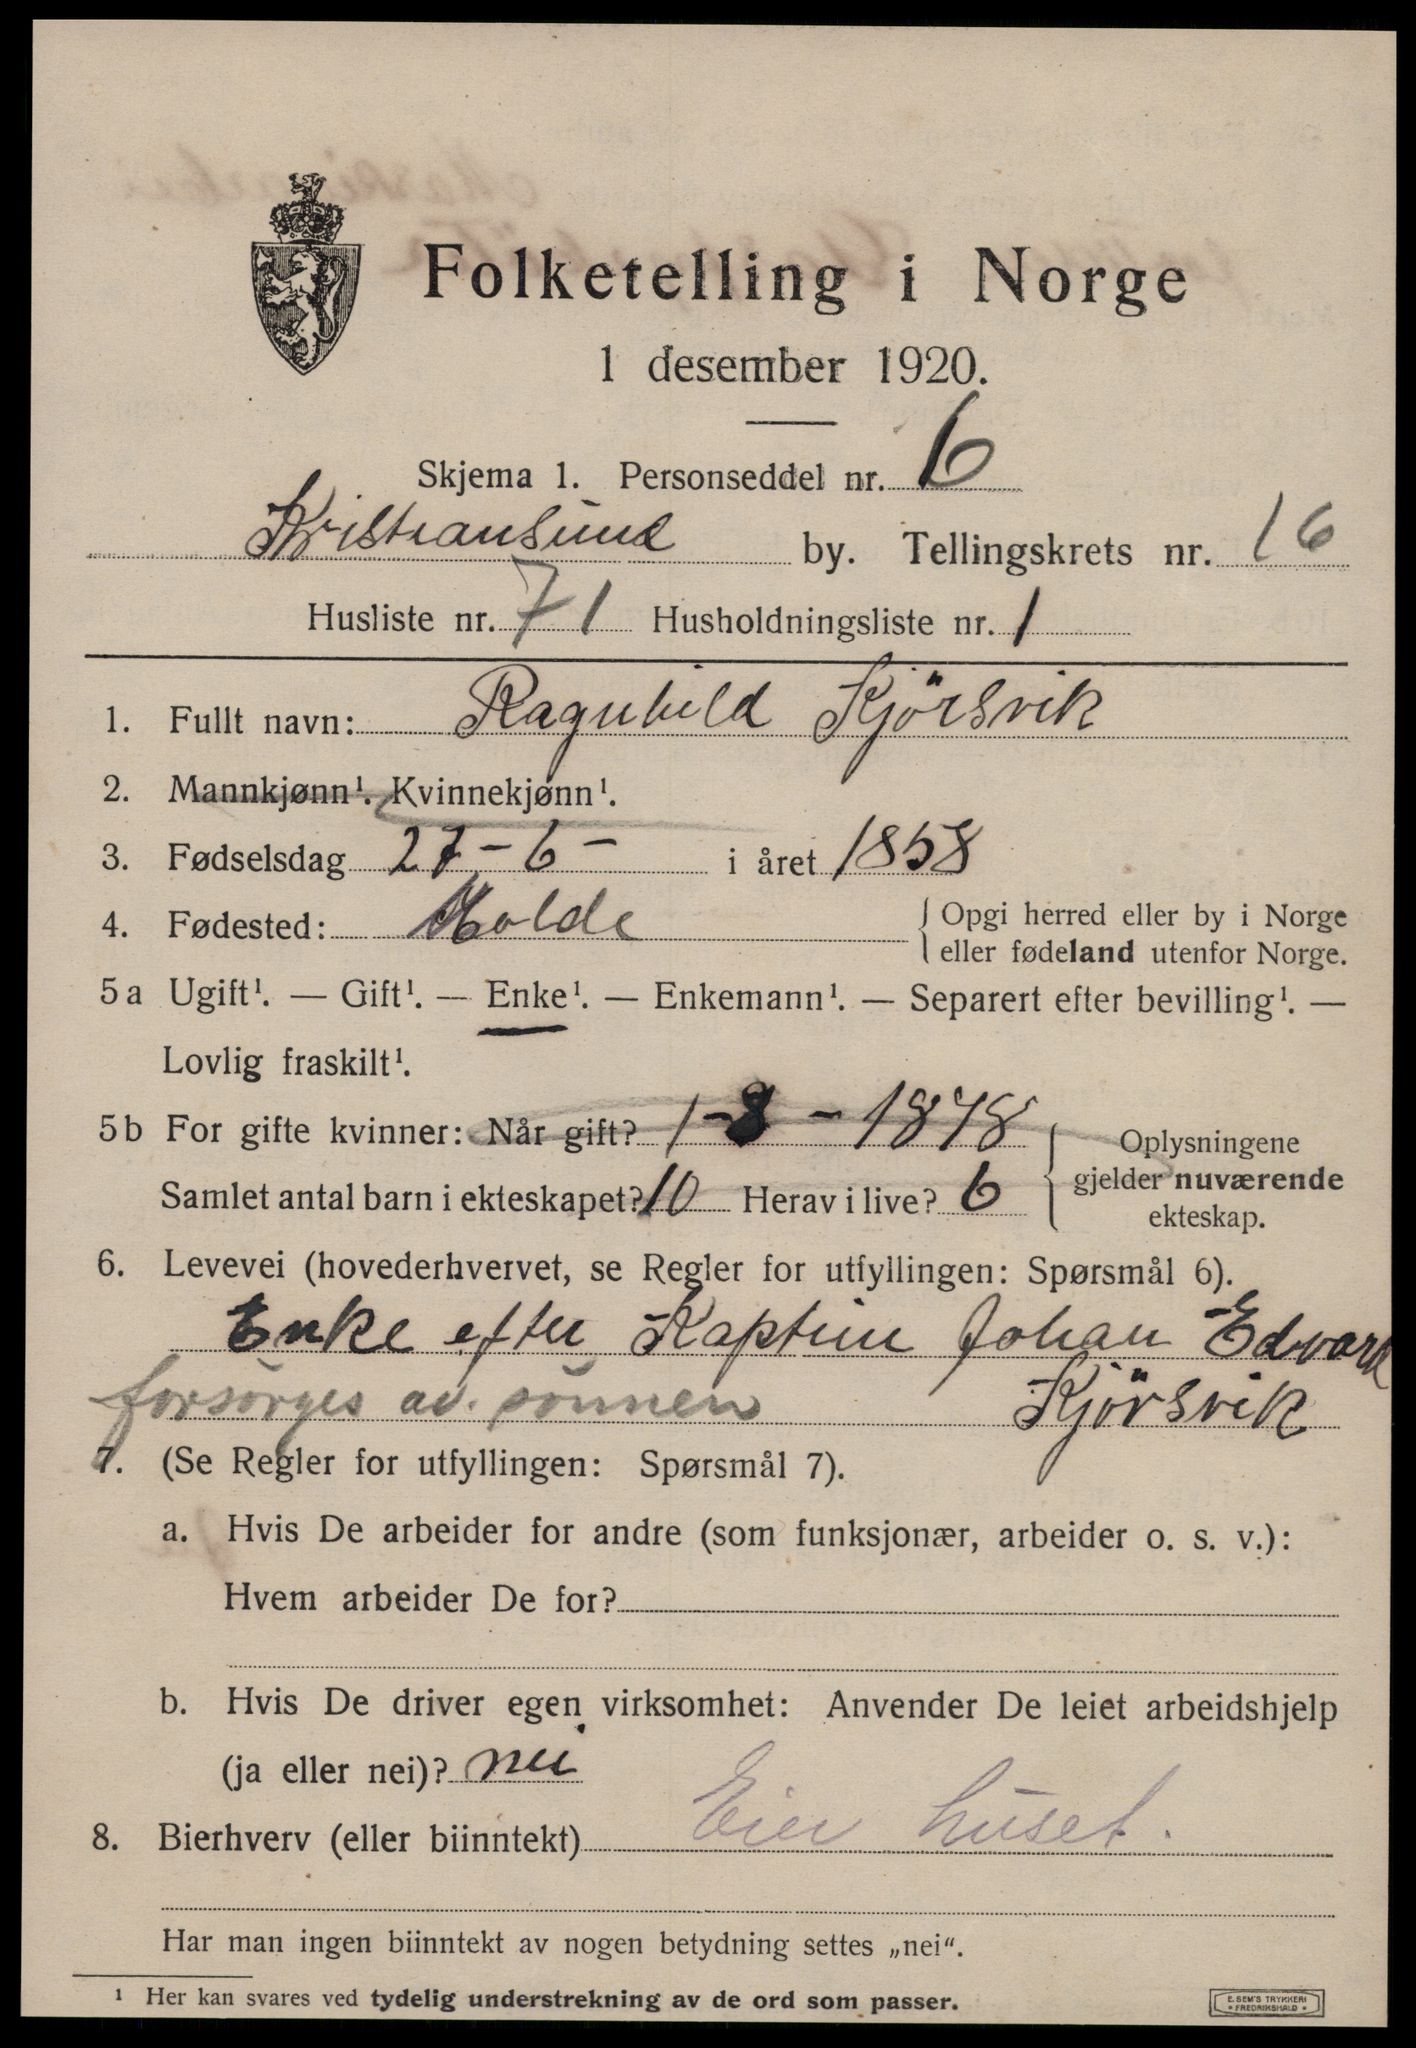 Folketelling i Norge
1 desember 1920.
Skjema 1. Personseddel nr. 6
Kristiansund by. Tellingskrets nr. 16
Husliste nr. 71 Husholdningsliste nr. 1
1. Fullt navn: Ragnhild Kjörsvik
2. Mannkjønn¹. Kvinnekjønn¹.
3. Fødselsdag 27-6- i året 1858
4. Fødested: Molde { Opgi herred eller by i Norge
eller fødeland utenfor Norge.
5a Ugift¹. — Gift¹. — Enke¹. — Enkemann¹. — Separert efter bevilling¹. —
Lovlig fraskilt¹.
5b For gifte kvinner: Når gift? 1-8-1878
Samlet antal barn i ekteskapet? 10 Herav i live? 6
{ Oplysningene
gjelder nuværende
ekteskap.
6. Levevei (hovederhvervet, se Regler for utfyllingen: Spørsmål 6).
Enke efter Kaptein Johan Edvard
forsörges av sönnen Kjörsvik
7. (Se Regler for utfyllingen: Spørsmål 7).
a. Hvis De arbeider for andre (som funksjonær, arbeider o. s. v.):
Hvem arbeider De for?
b. Hvis De driver egen virksomhet: Anvender De leiet arbeidshjelp
(ja eller nei)? nei
8. Bierhverv (eller biinntekt) Eier huset.
Har man ingen biinntekt av nogen betydning settes „nei“.
¹ Her kan svares ved tydelig understrekning av de ord som passer.
E. SEM'S TRYKKERI
• FREDRIKSHALD •